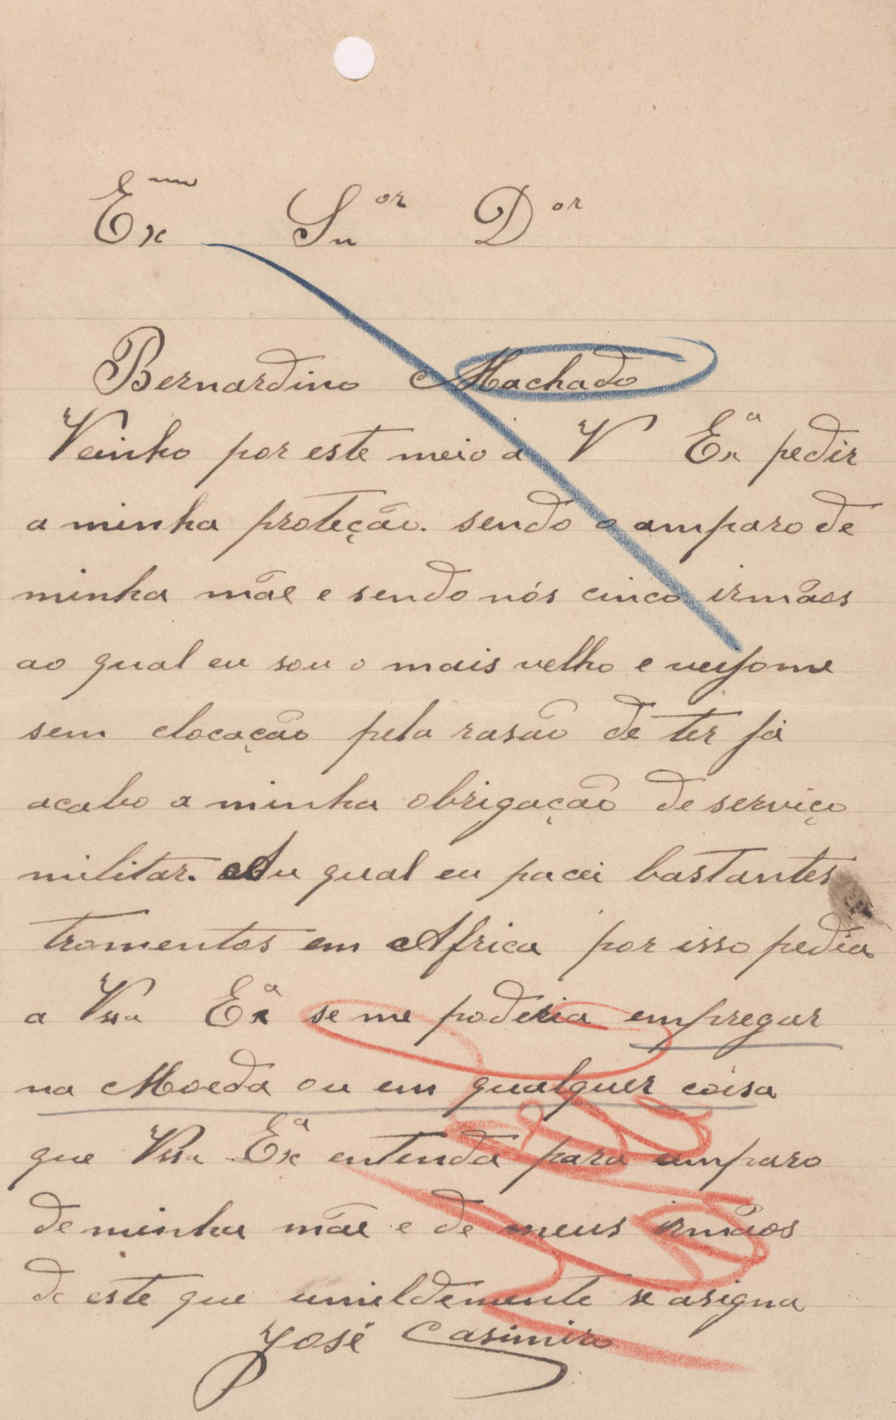 Exmo Snor Dor
Bernardino Machado
Veinho por este meio a V Exa pedir
a minha proteção. sendo o amparo de
minha mãe e sendo nós cinco irmãos
ao qual eu sou o mais velho e vejome
sem clocação pela rasão de ter já
acabo a minha obrigação de serviço
militar. Au qual eu pacei bastantes
tromentos em Africa por isso pedia
a Vssa Exa se me poderia empregar
na Moeda ou em qualquer coisa
que Vssa Exa entenda para amparo
de minha mãe e de meus irmãos
de este que umeldemente se asigna
José Casimiro